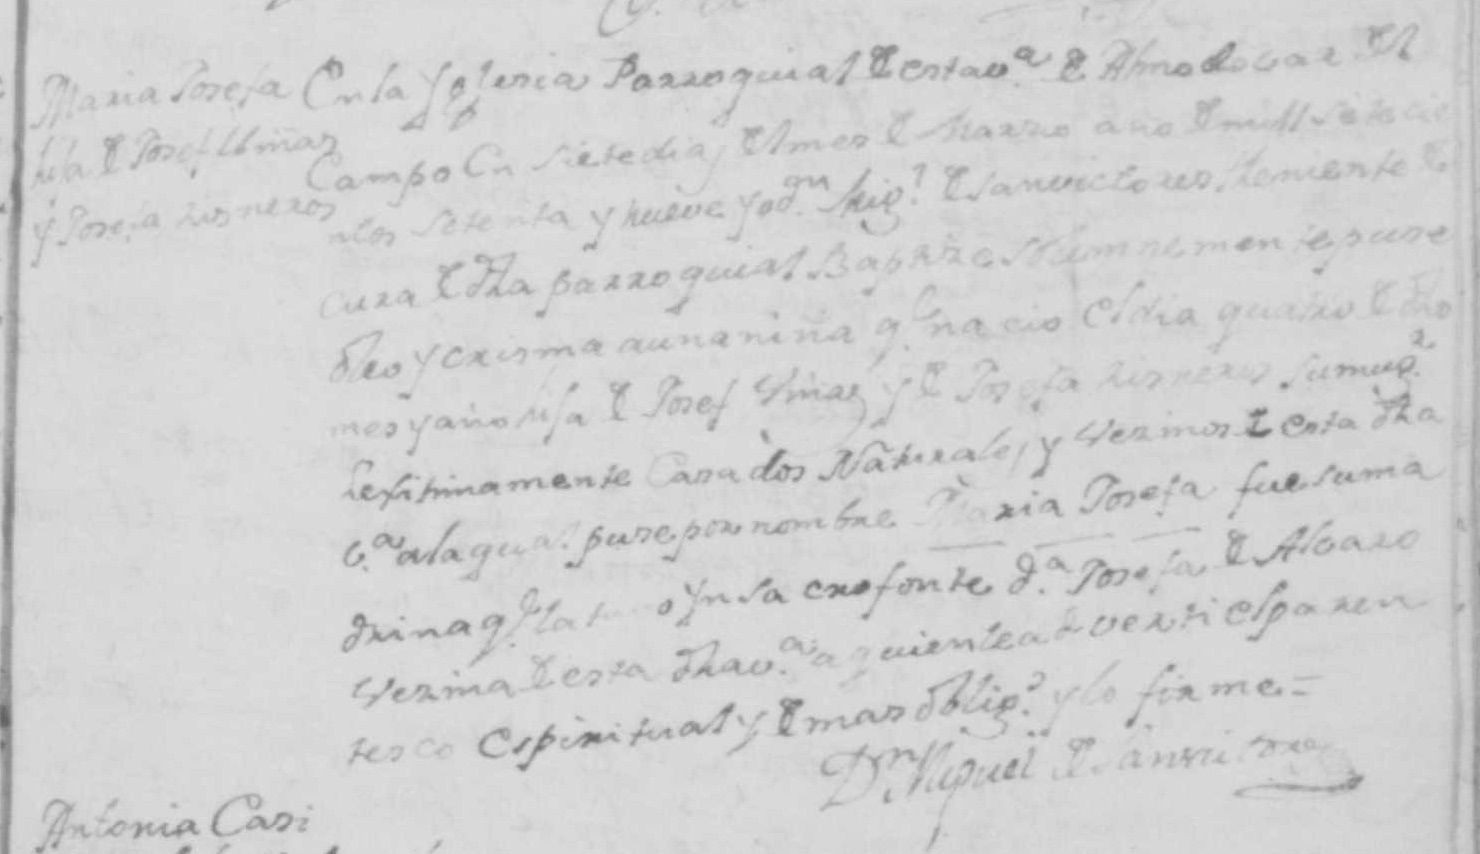 Maria Josefa
hija de Josef Umar
y Josefa Zisneros
En la Yglesia Parroquial de esta v.ª de Almodovar del
Campo en siete dias del mes de Marzo año de mill setecie
ntos setenta y nueve yo dn. Mig.l de Sanvictores theniente de
cura de dha parroquial Baptize solemnemente puse
oleo y crisma a una niña q.e nacio el dia quatro de dho
mes y año hija de Josef y de Josefa Zisneros su mug.r
lexitimamente Casados Naturales y vezinos de esta dha
v.ª a la qual puse por nombre Maria Josefa fue su ma
drina q.e la tuvo yn sacro fonte d.ª Josefa de Alvaro
vezina de esta dha v.ª a quien le adverti el paren
tesco espiritual y demas oblig.s y lo firme =
Dn Miguel de Sanvictores
Antonia Casi